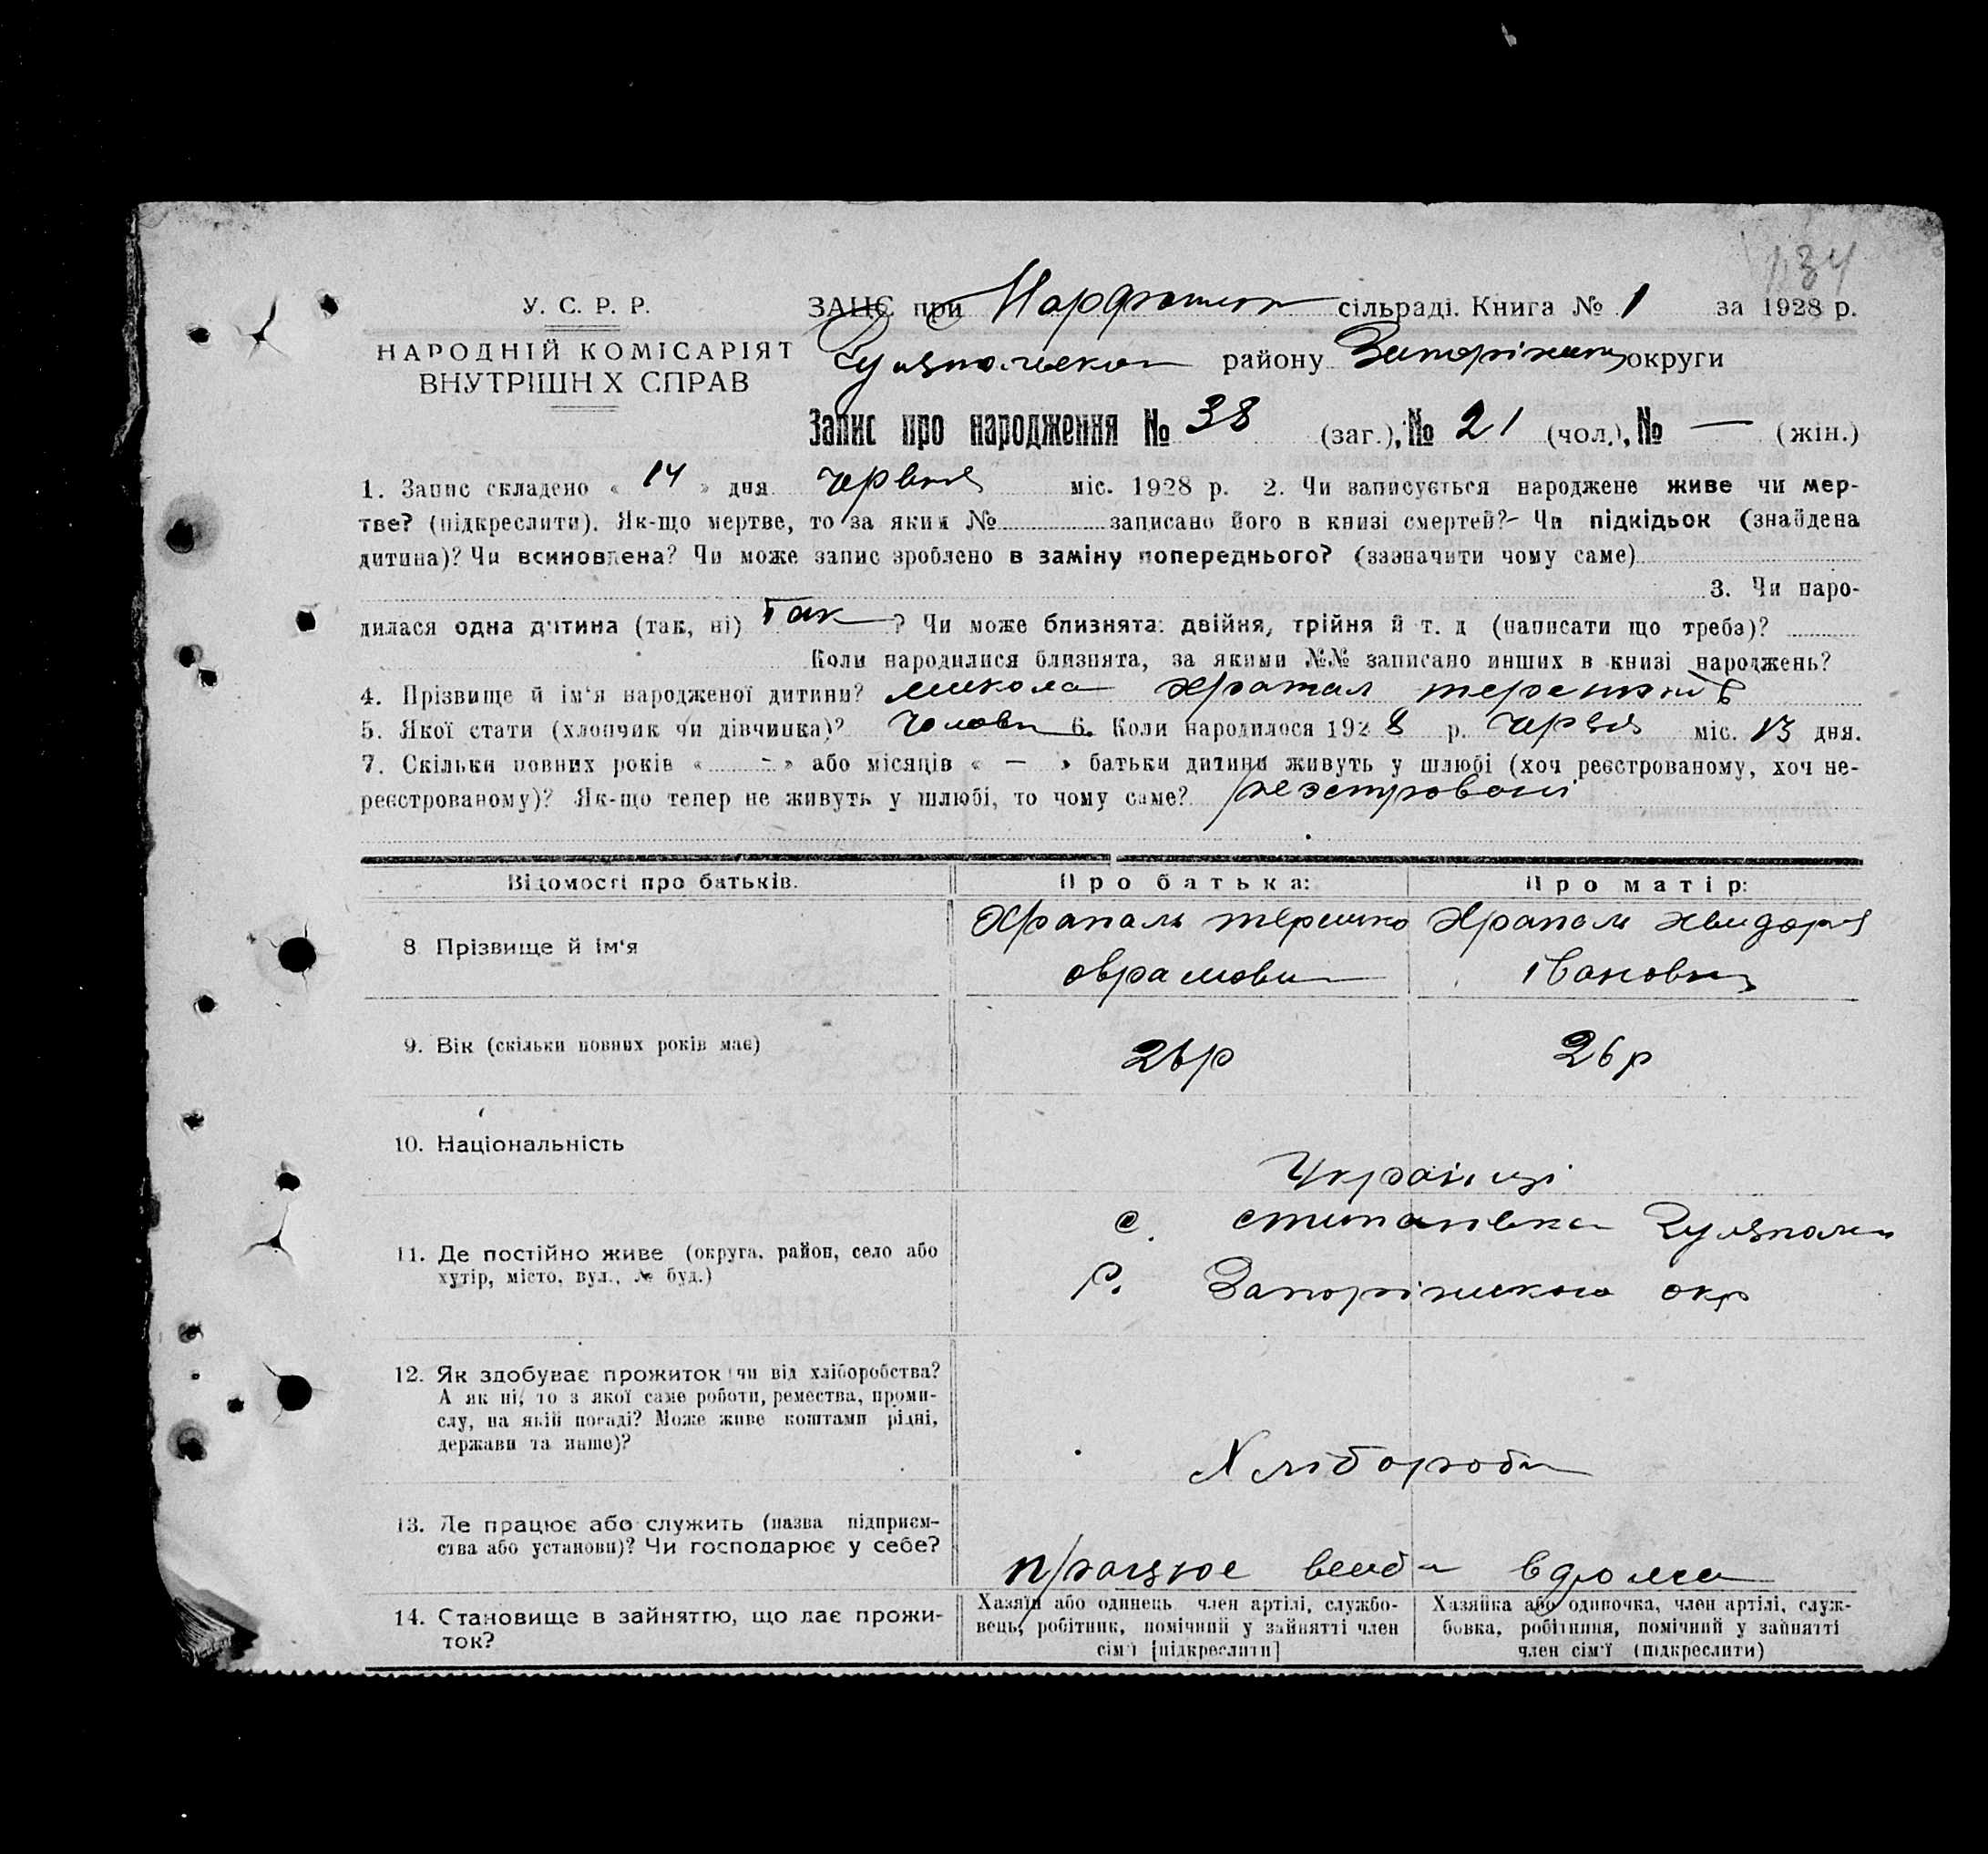 134
У. С. Р. Р.
НАРОДНІЙ КОМІСАРІЯТ
ВНУТРІШН Х СПРАВ
ЗАЦС при сільраді. Книга № 1 за 1928 р.
району округи
Запис про народження № 38 (заг.), № 21 (чол.), № — (жін.)
1. Запис складено « 14 » дня червня міс. 1928 р. 2. Чи записується народжене живе чи мер-
тве? (підкреслити). Як-що мертве, то за яким № записано його в книзі смертей?- Чи підкідьок (знайдена
дитина)? Чи всиновлена? Чи може запис зроблено в заміну попереднього? (зазначити чому саме)
3. Чи наро-
дилася одна дитина (так, ні) Так ? Чи може близнята: двійня, трійня й т. д (написати що треба)?
Коли народилися близнята, за якими №№ записано инших в книзі народжень?
4. Прізвище й ім'я народженої дитини? микола
5. Якої стати (хлопчик чи дівчинка)? 6. Коли народилося 1928 р. міс. 13 дня.
7. Скільки повних років « - » або місяців « — » батьки дитини живуть у шлюбі (хоч реєстрованому, хоч не-
реєстрованому)? Як-що тепер не живуть у шлюбі, то чому саме?
Відомості про батьків. Про батька: Про матір:
8. Прізвище й ім'я Храпаль терешко Храпаль
9. Вік (скільки повних років має) 26 р 26 р
10. Національність
Українці
11. Де постійно живе (округа, район, село або
хутір, місто, вул., № буд.)
с. степанівка
р. окр
12. Як здобуває прожиток чи від хліборобства?
А як ні, то з якої саме роботи, ремества, проми-
слу, на якій посаді? Може живе коштами рідні,
держави та инше)?
Хлібороби
13. Де працює або служить (назва підприєм-
ства або установи)? Чи господарює у себе?
працює вдома
14. Становище в зайняттю, що дає прожи-
ток?
Хазяїн або одинець, член артілі, службо-
вець, робітник, помічний у зайнятті член
сім'ї [підкреслити]
Хазяйка або одиночка, член артілі, служ-
бовка, робітниця, помічний у зайнятті
член сім'ї (підкреслити)